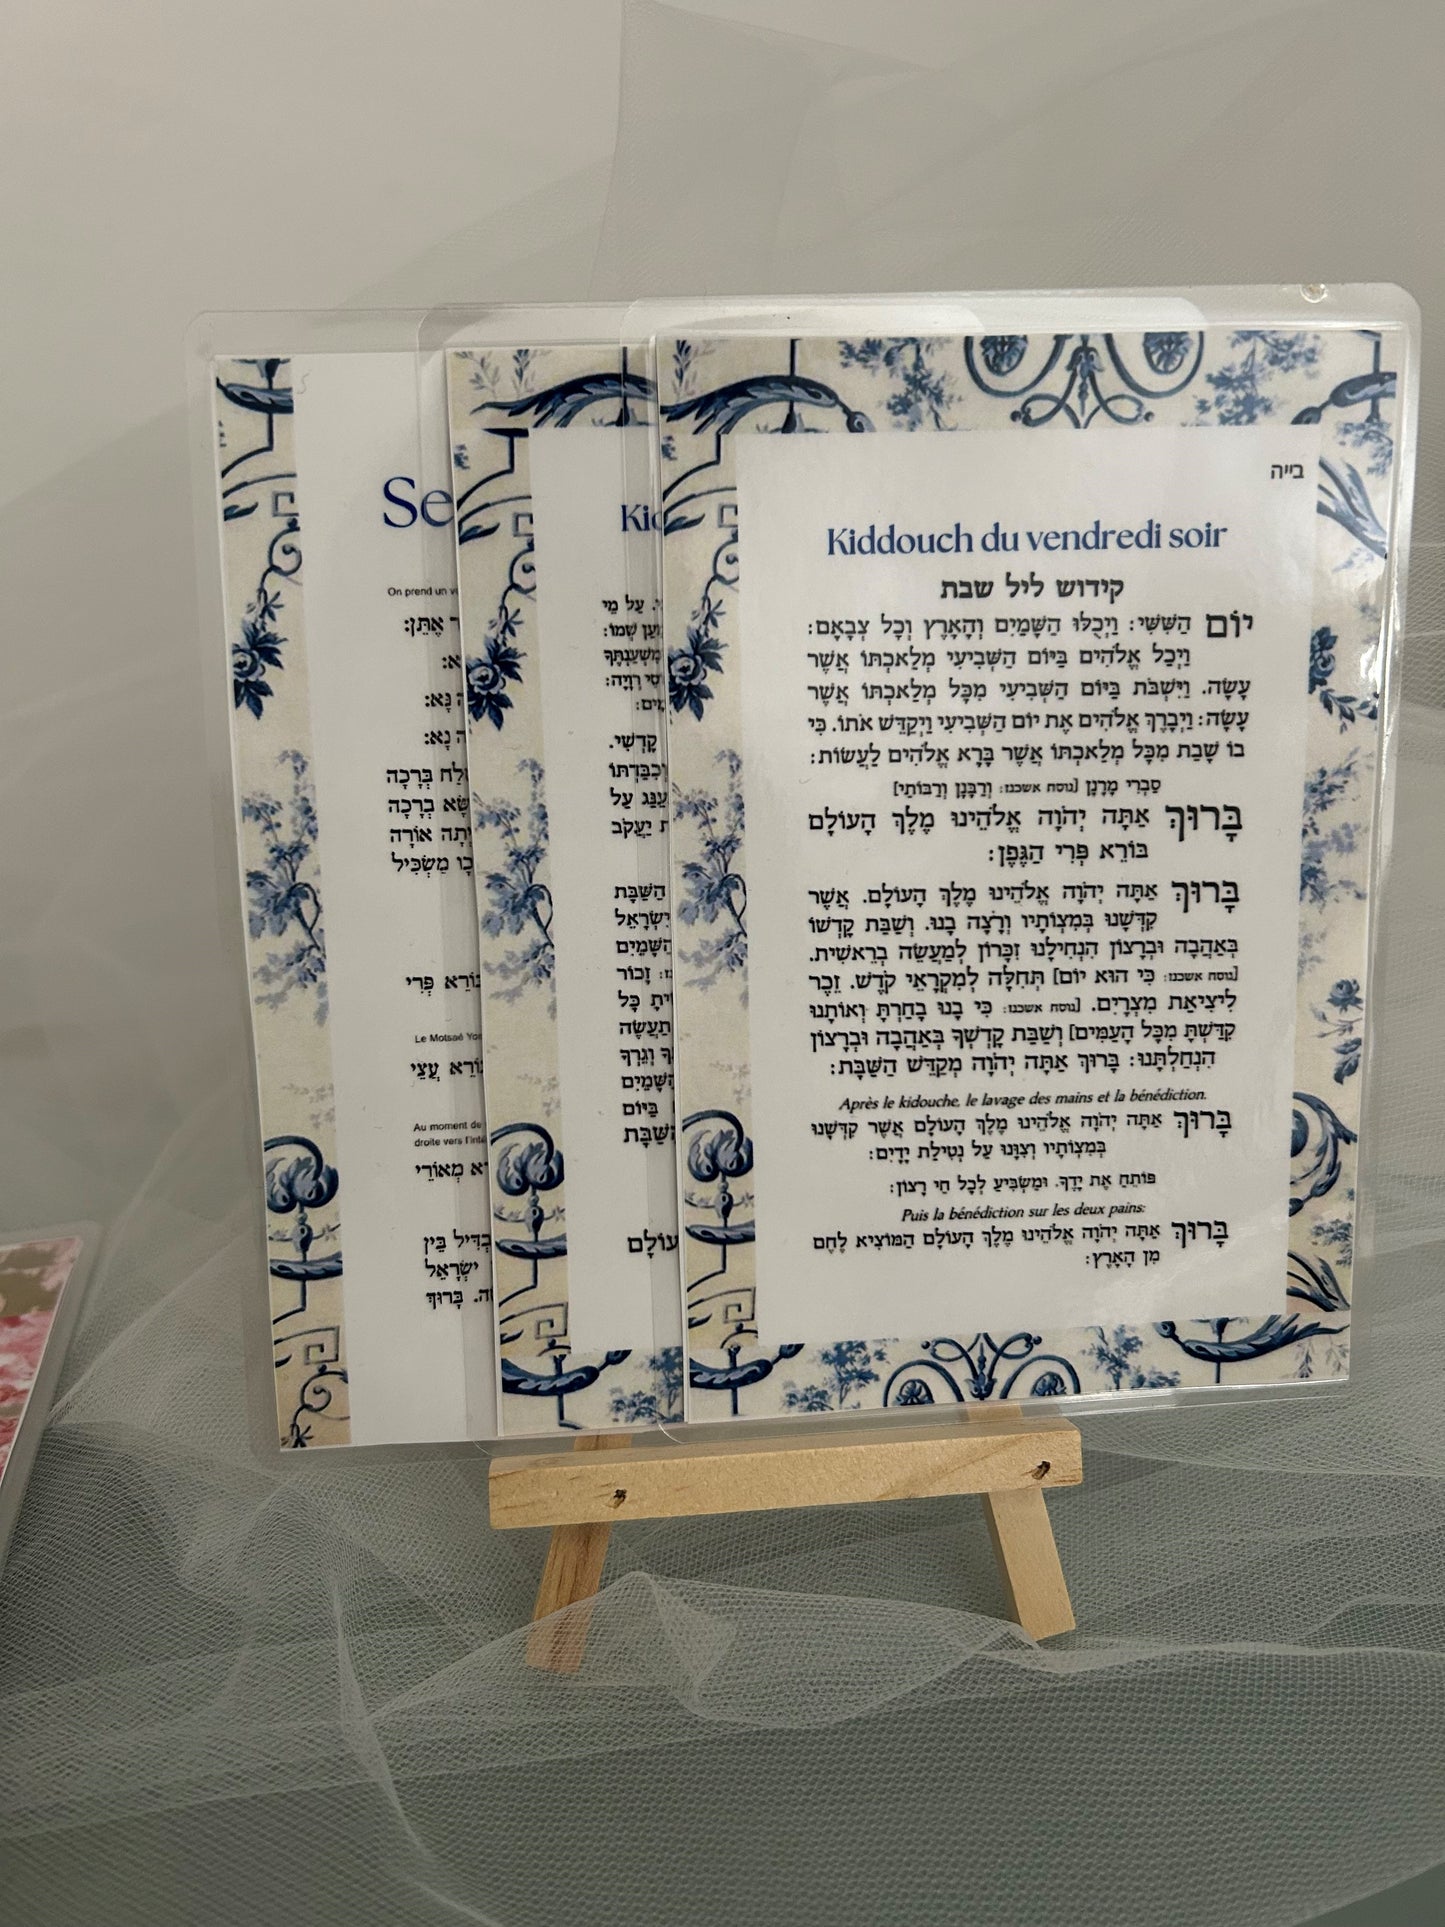 בייה
Kiddouch du vendredi soir
קידוש ליל שבת
יוֹם הַשִּׁשִּׁי: וַיְכֻלּוּ הַשָּׁמַיִם וְהָאָרֶץ וְכָל צְבָאָם:
וַיְכַל אֱלֹהִים בַּיּוֹם הַשְּׁבִיעִי מְלַאכְתּוֹ אֲשֶׁר
עָשָׂה. וַיִּשְׁבֹּת בַּיּוֹם הַשְּׁבִיעִי מִכָּל מְלַאכְתּוֹ אֲשֶׁר
עָשָׂה: וַיְבָרֶךְ אֱלֹהִים אֶת יוֹם הַשְּׁבִיעִי וַיְקַדֵּשׁ אֹתוֹ. כִּי
בוֹ שָׁבַת מִכָּל מְלַאכְתּוֹ אֲשֶׁר בָּרָא אֱלֹהִים לַעֲשׂוֹת:
סַבְרִי מָרָנָן [נוסח אשכנז: וְרַבָּנָן וְרַבּוֹתַי]
בָּרוּךְ אַתָּה יְהֹוָה אֱלֹהֵינוּ מֶלֶךְ הָעוֹלָם
בּוֹרֵא פְּרִי הַגֶּפֶן:
בָּרוּךְ אַתָּה יְהֹוָה אֱלֹהֵינוּ מֶלֶךְ הָעוֹלָם. אֲשֶׁר
קִדְּשָׁנוּ בְּמִצְוֹתָיו וְרָצָה בָנוּ. וְשַׁבַּת קָדְשׁוֹ
בְּאַהֲבָה וּבְרָצוֹן הִנְחִילָנוּ זִכָּרוֹן לְמַעֲשֵׂה בְרֵאשִׁית.
[נוסח אשכנז: כִּי הוּא יוֹם] תְּחִלָּה לְמִקְרָאֵי קֹדֶשׁ. זֵכֶר
לִיצִיאַת מִצְרָיִם. [נוסח אשכנז: כִּי בָנוּ בָחַרְתָּ וְאוֹתָנוּ
קִדַּשְׁתָּ מִכָּל הָעַמִּים] וְשַׁבַּת קָדְשְׁךָ בְּאַהֲבָה וּבְרָצוֹן
הִנְחַלְתָּנוּ: בָּרוּךְ אַתָּה יְהֹוָה מְקַדֵּשׁ הַשַּׁבָּת:
Après le kidouche, le lavage des mains et la bénédiction.
בָּרוּךְ אַתָּה יְהֹוָה אֱלֹהֵינוּ מֶלֶךְ הָעוֹלָם אֲשֶׁר קִדְּשָׁנוּ
בְּמִצְוֹתָיו וְצִוָּנוּ עַל נְטִילַת יָדָיִם:
פּוֹתֵחַ אֶת יָדֶךָ. וּמַשְׂבִּיעַ לְכָל חַי רָצוֹן:
Puis la bénédiction sur les deux pains:
בָּרוּךְ אַתָּה יְהֹוָה אֱלֹהֵינוּ מֶלֶךְ הָעוֹלָם הַמּוֹצִיא לֶחֶם
מִן הָאָרֶץ:
עַל מֵי
שְׁמוֹ:
רְוָיָה:
קָדְשִׁי.
וְכִבַּדְתּוֹ
עַל
יַעֲקֹב
הַשַּׁבָּת
יִשְׂרָאֵל
הַשָּׁמַיִם
זָכוֹר
כָּל
תַעֲשֶׂה
וְגֵרְךָ
הַשָּׁמַיִם
בַּיּוֹם
הַשַּׁבָּת
Se
On prend un
אֶתֵּן:
נָּא:
נָא:
בְּרָכָה
בְרָכָה
אוֹרָה
מַשְׂכִּיל
בּוֹרֵא פְּרִי
Le Motsaé
עֲצֵי
Au moment de
droite vers
מְאוֹרֵי
בֵּין
יִשְׂרָאֵל
בָּרוּךְ